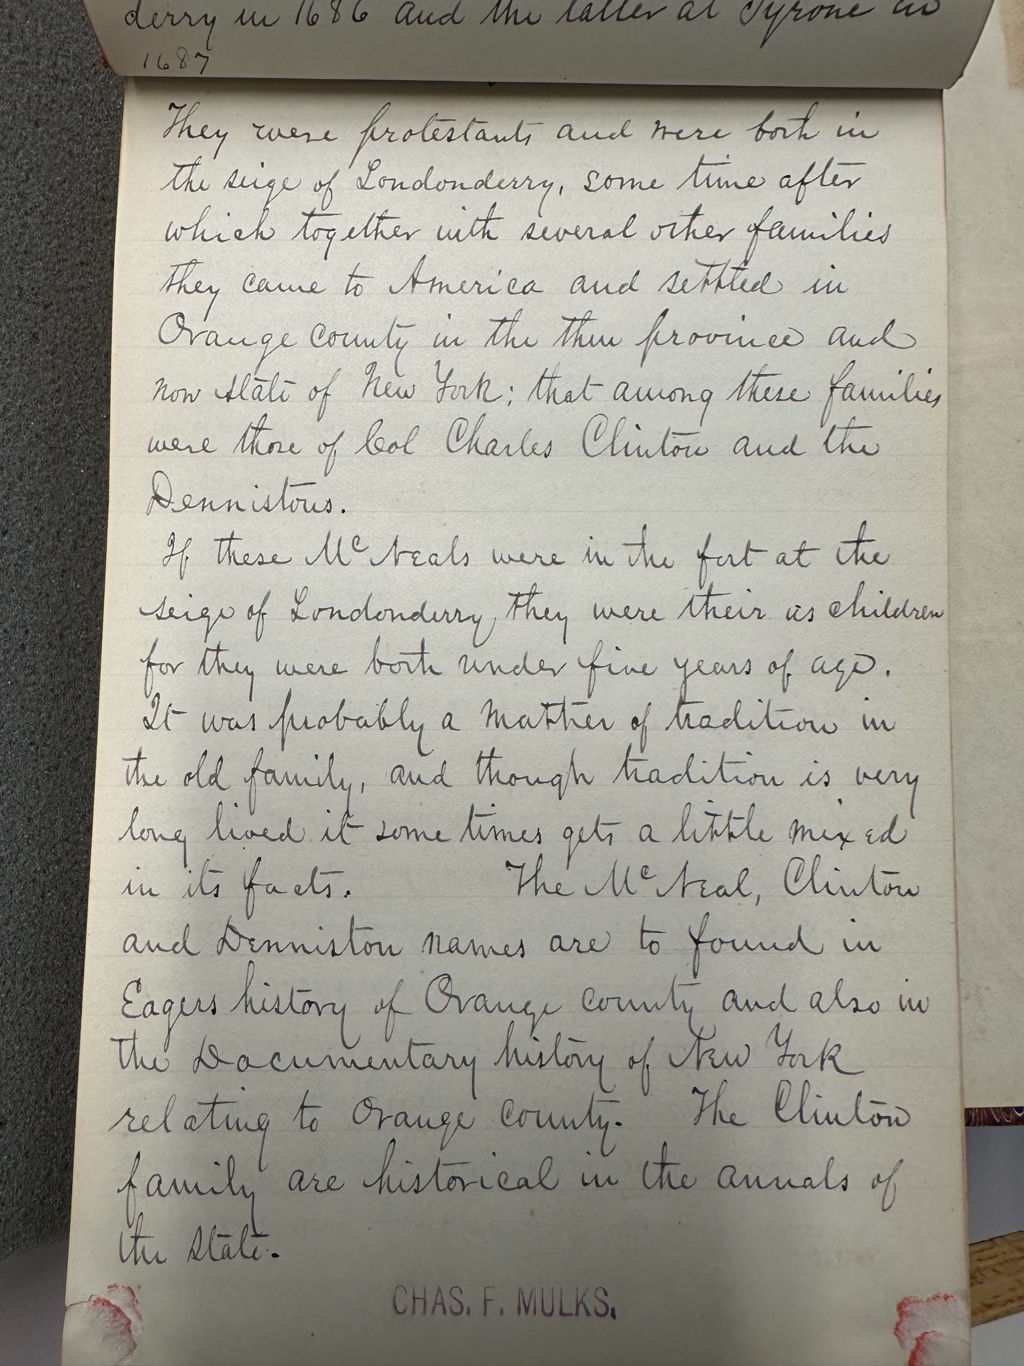 derry in 1686 and the latter at Tyrone in
1687
They were protestants and were both in
the seige of Londonderry, some time after
which together with several other families
they came to America and settled in
Orange county in the then province and
now state of New York; that among these families
were those of Col Charles Clinton and the
Dennistons.
If these McNeals were in the fort at the
seige of Londonderry, they were their as children
for they were both under five years of age.
It was probably a matter of tradition in
the old family, and though tradition is very
long lived it some times gets a little mixed
in its facts. The McNeal, Clinton
and Denniston names are to found in
Eagers history of Orange county and also in
the Documentary history of New York
relating to Orange county. The Clinton
family are historical in the annals of
the state.
CHAS. F. MULKS.